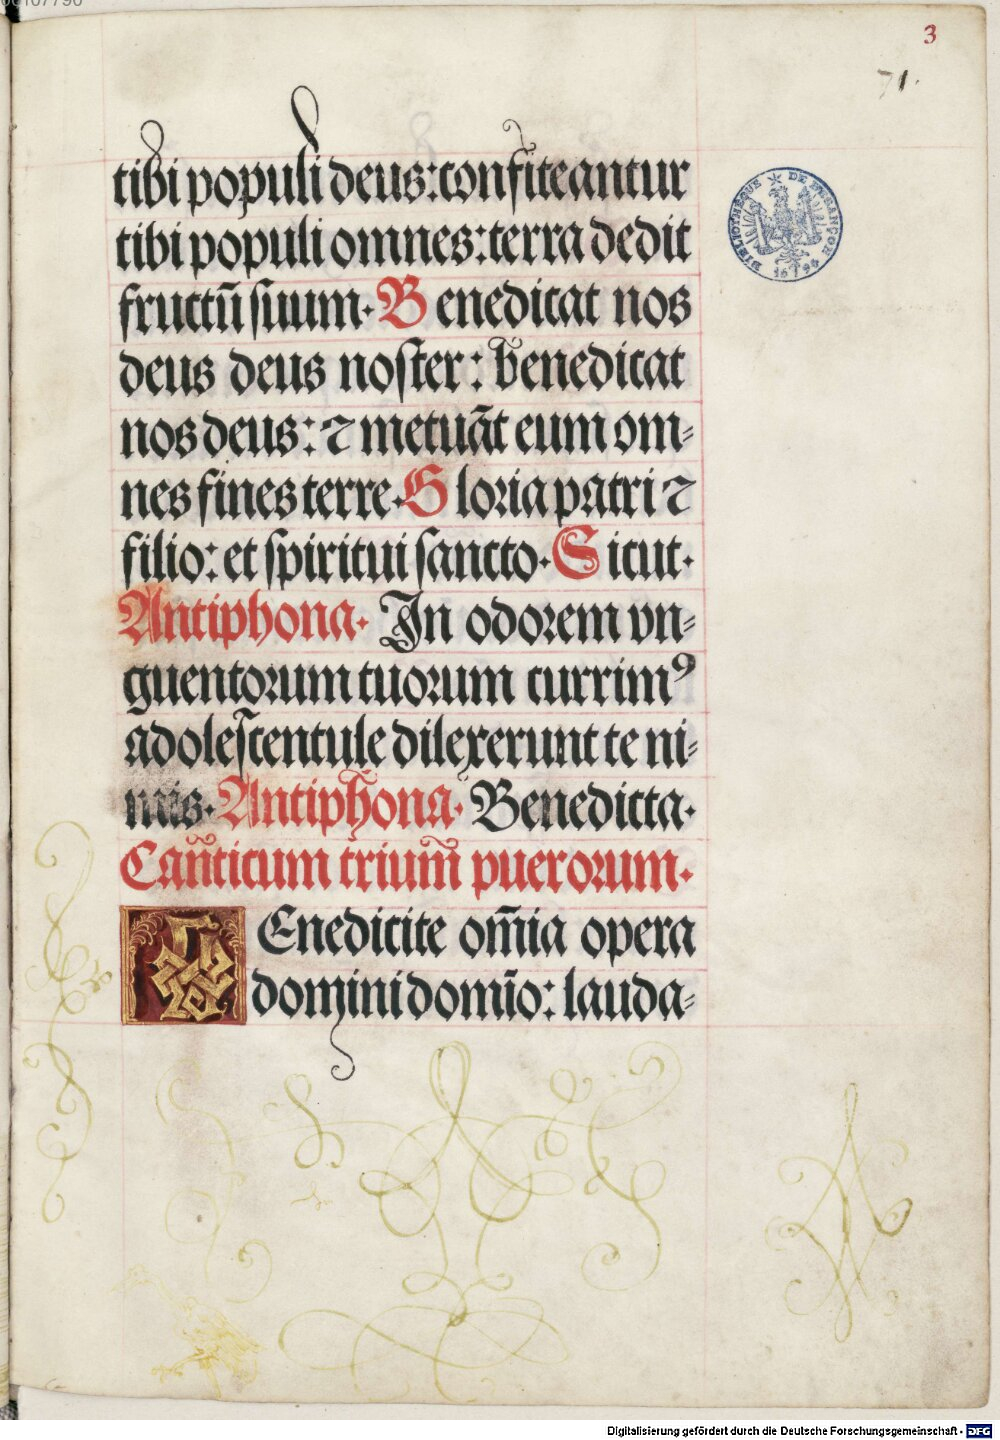 3
71.
tibi populi deus: confiteantur
tibi populi omnes: terra dedit
fructū suum. Benedicat nos
deus deus noster: benedicat
nos deus: ⁊ metuāt eum om=
nes fines terre. Gloria patri ⁊
filio: et spiritui sancto. Sicut.
Antiphona. In odorem vn=
guentorum tuorum currimꝰ
adolescentule dilexerunt te ni=
mis. Antiphona. Benedicta.
Canticum trium puerorum.
BEnedicite om̄ia opera
domini domīo: lauda=
BIBLIOTHÈQUE DE BESANÇON
1694
Digitalisierung gefördert durch die Deutsche Forschungsgemeinschaft - DFG